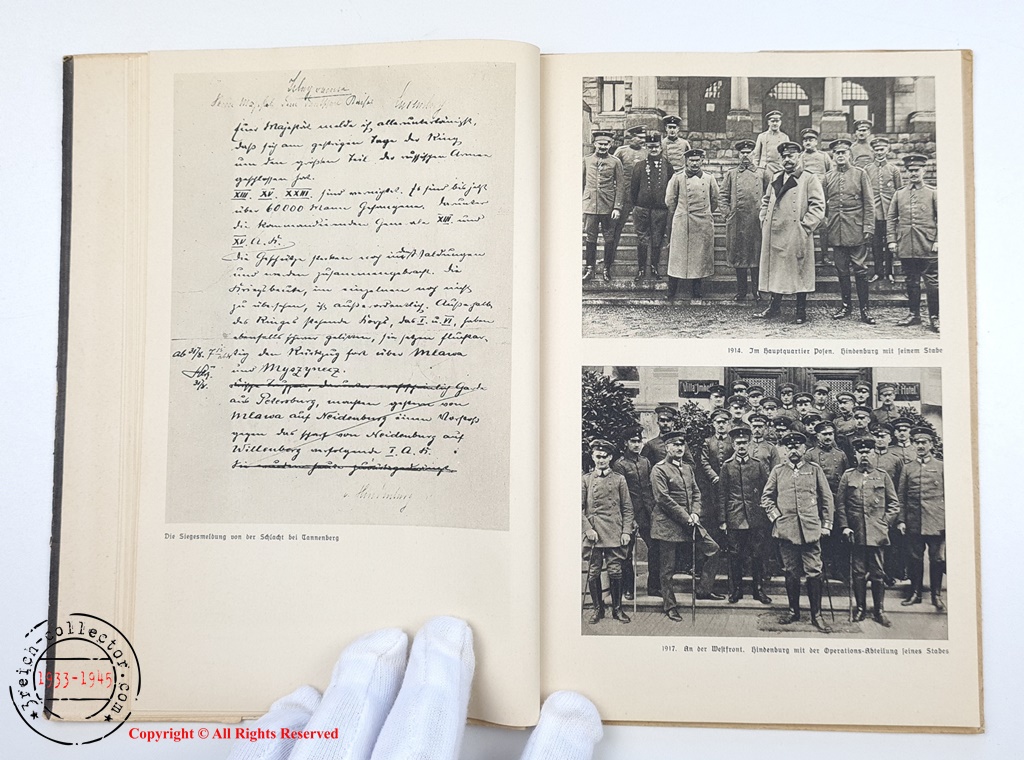 Telegramm
Eure Majestät melde ich alleruntertänigst,
daß sich am gestrigen Tage der Ring
um den größten Teil der russischen Armee
geschlossen hat.
XIII. XV. XXIII. sind vernichtet. Es sind bis jetzt
über 60000 Mann Gefangene, darunter
die Kommandierenden Generale XIII. und
XV. A.K.
Die Geschütze stecken noch in den Waldungen
und werden zusammengebracht. Die
Kriegsbeute, im einzelnen noch nicht
zu übersehen, ist außerordentlich. Außerhalb
des Ringes stehende Korps, das I. u. VI, haben
ebenfalls schwer gelitten, sie setzen fluchtar
tig den Rückzug fort über Mlawa
und Myszyniec.
aus Petersburg, machten gestern von
Mlawa auf Neidenburg einen Vorstoß
gegen das scharf von Neidenburg auf
Willenberg verfolgende I. A.K.
v. Hindenburg
Die Siegesmeldung von der Schlacht bei Tannenberg
1914. Im Hauptquartier Posen. Hindenburg mit seinem Stabe
1917. An der Westfront. Hindenburg mit der Operations-Abteilung seines Stabes
3reich-collector.com
1933-1945
Copyright © All Rights Reserved